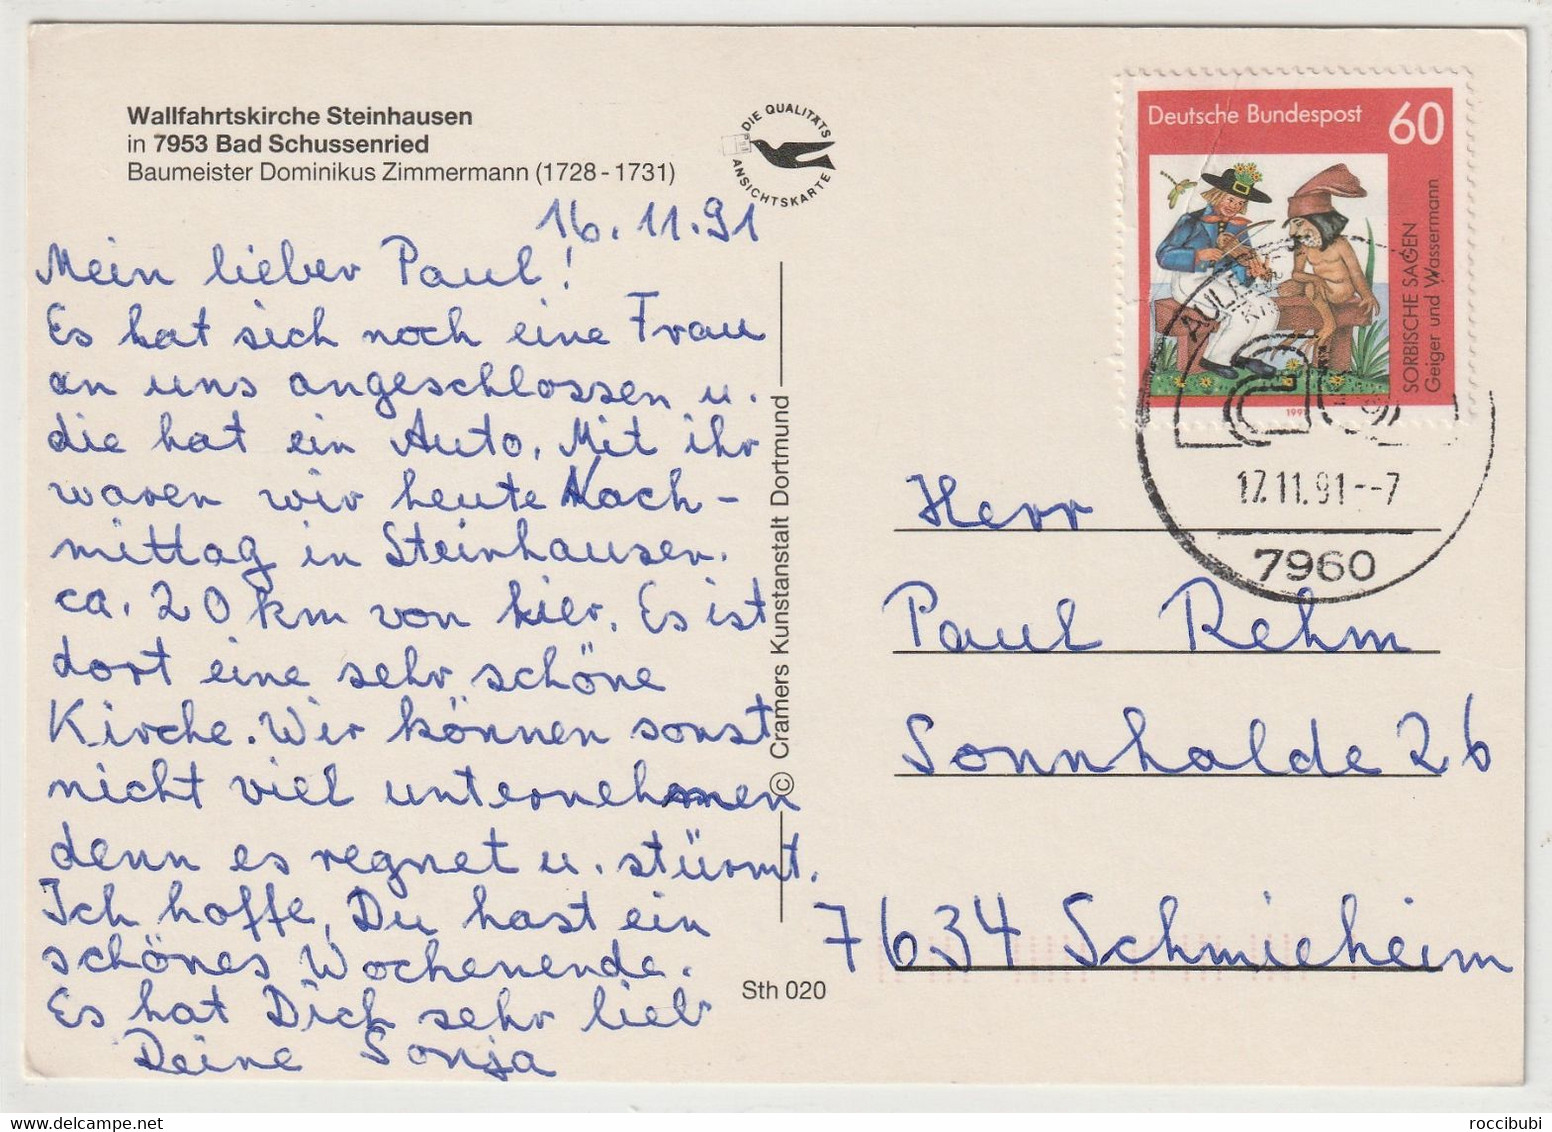 Wallfahrtskirche Steinhausen
in 7953 Bad Schussenried
Baumeister Dominikus Zimmermann (1728-1731)
DIE QUALITÄTS
ANSICHTSKARTE
16.11.91
Mein lieber Paul!
Es hat sich noch eine Frau
an uns angeschlossen u.
die hat ein Auto. Mit ihr
waren wir heute Nach-
mittag in Steinhausen.
ca. 20 km von hier. Es ist
dort eine sehr schöne
Kirche. Wir können sonst
nicht viel unternehmen
denn es regnet u. stürmt.
Ich hoffe, Du hast ein
schönes Wochenende.
Es hat Dich sehr lieb
Deine Sonja
© Cramers Kunstanstalt Dortmund
Sth 020
Deutsche Bundespost 60
SORBISCHE SAGEN
Geiger und Wassermann
17.11.91--7
7960
Herr
Paul Rehm
Sonnhalde 26
7634 Schmieheim
roccibubi